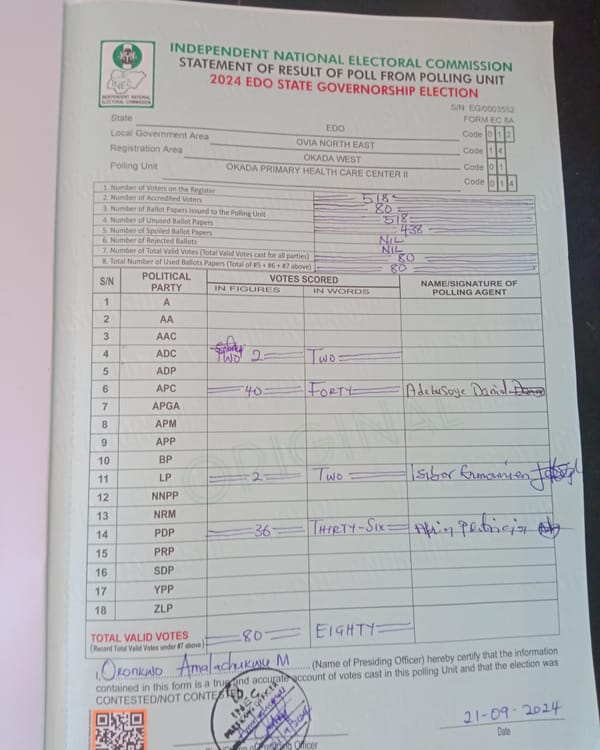 INDEPENDENT NATIONAL ELECTORAL COMMISSION
STATEMENT OF RESULT OF POLL FROM POLLING UNIT
2024 EDO STATE GOVERNORSHIP ELECTION
INEC
INDEPENDENT NATIONAL ELECTORAL COMMISSION
S/N: EG/0003552
FORM EC 8A
State EDO Code 0 1 2
Local Government Area OVIA NORTH EAST Code 1 4
Registration Area OKADA WEST Code 0 1
Polling Unit OKADA PRIMARY HEALTH CARE CENTER II Code 0 1 4
1. Number of Voters on the Register 518
2. Number of Accredited Voters 80
3. Number of Ballot Papers Issued to the Polling Unit 518
4. Number of Unused Ballot Papers 438
5. Number of Spoiled Ballot Papers NIL
6. Number of Rejected Ballots NIL
7. Number of Total Valid Votes (Total Valid Votes cast for all parties) 80
8. Total Number of Used Ballots Papers (Total of #5 + #6 + #7 above) 80
S/N POLITICAL PARTY VOTES SCORED NAME/SIGNATURE OF POLLING AGENT
IN FIGURES IN WORDS
1 A
2 AA
3 AAC
4 ADC TWO 2 TWO
5 ADP
6 APC 40 FORTY Adebusoye Daniel
7 APGA
8 APM
9 APP
10 BP
11 LP 2 TWO
12 NNPP
13 NRM
14 PDP 36 THIRTY-SIX
15 PRP
16 SDP
17 YPP
18 ZLP
ORIGINAL
TOTAL VALID VOTES 80 EIGHTY
(Record Total Valid Votes under #7 above)
I, ORONKWO AMALACHUKWU M (Name of Presiding Officer) hereby certify that the information
contained in this form is a true and accurate account of votes cast in this polling Unit and that the election was
CONTESTED/NOT CONTESTED.
INEC
21-09-2024
Date
Presiding Officer